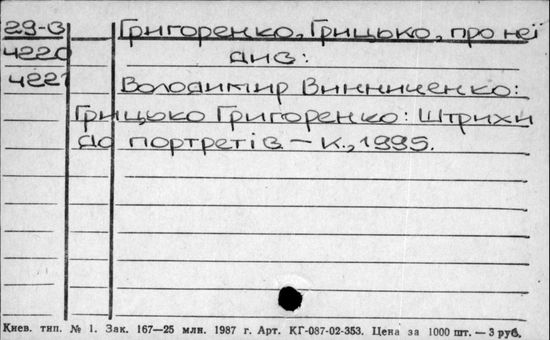 29-В Григоренко, Грицько, про неї
4220 див:
4221 Володимир Винниченко:
Грицько Григоренко: Штрихи
до портретів – К., 1995.
Киев. тип. № 1. Зак. 167—25 млн. 1987 г. Арт. КГ-087-02-353. Цена за 1000 шт. — 3 руб.